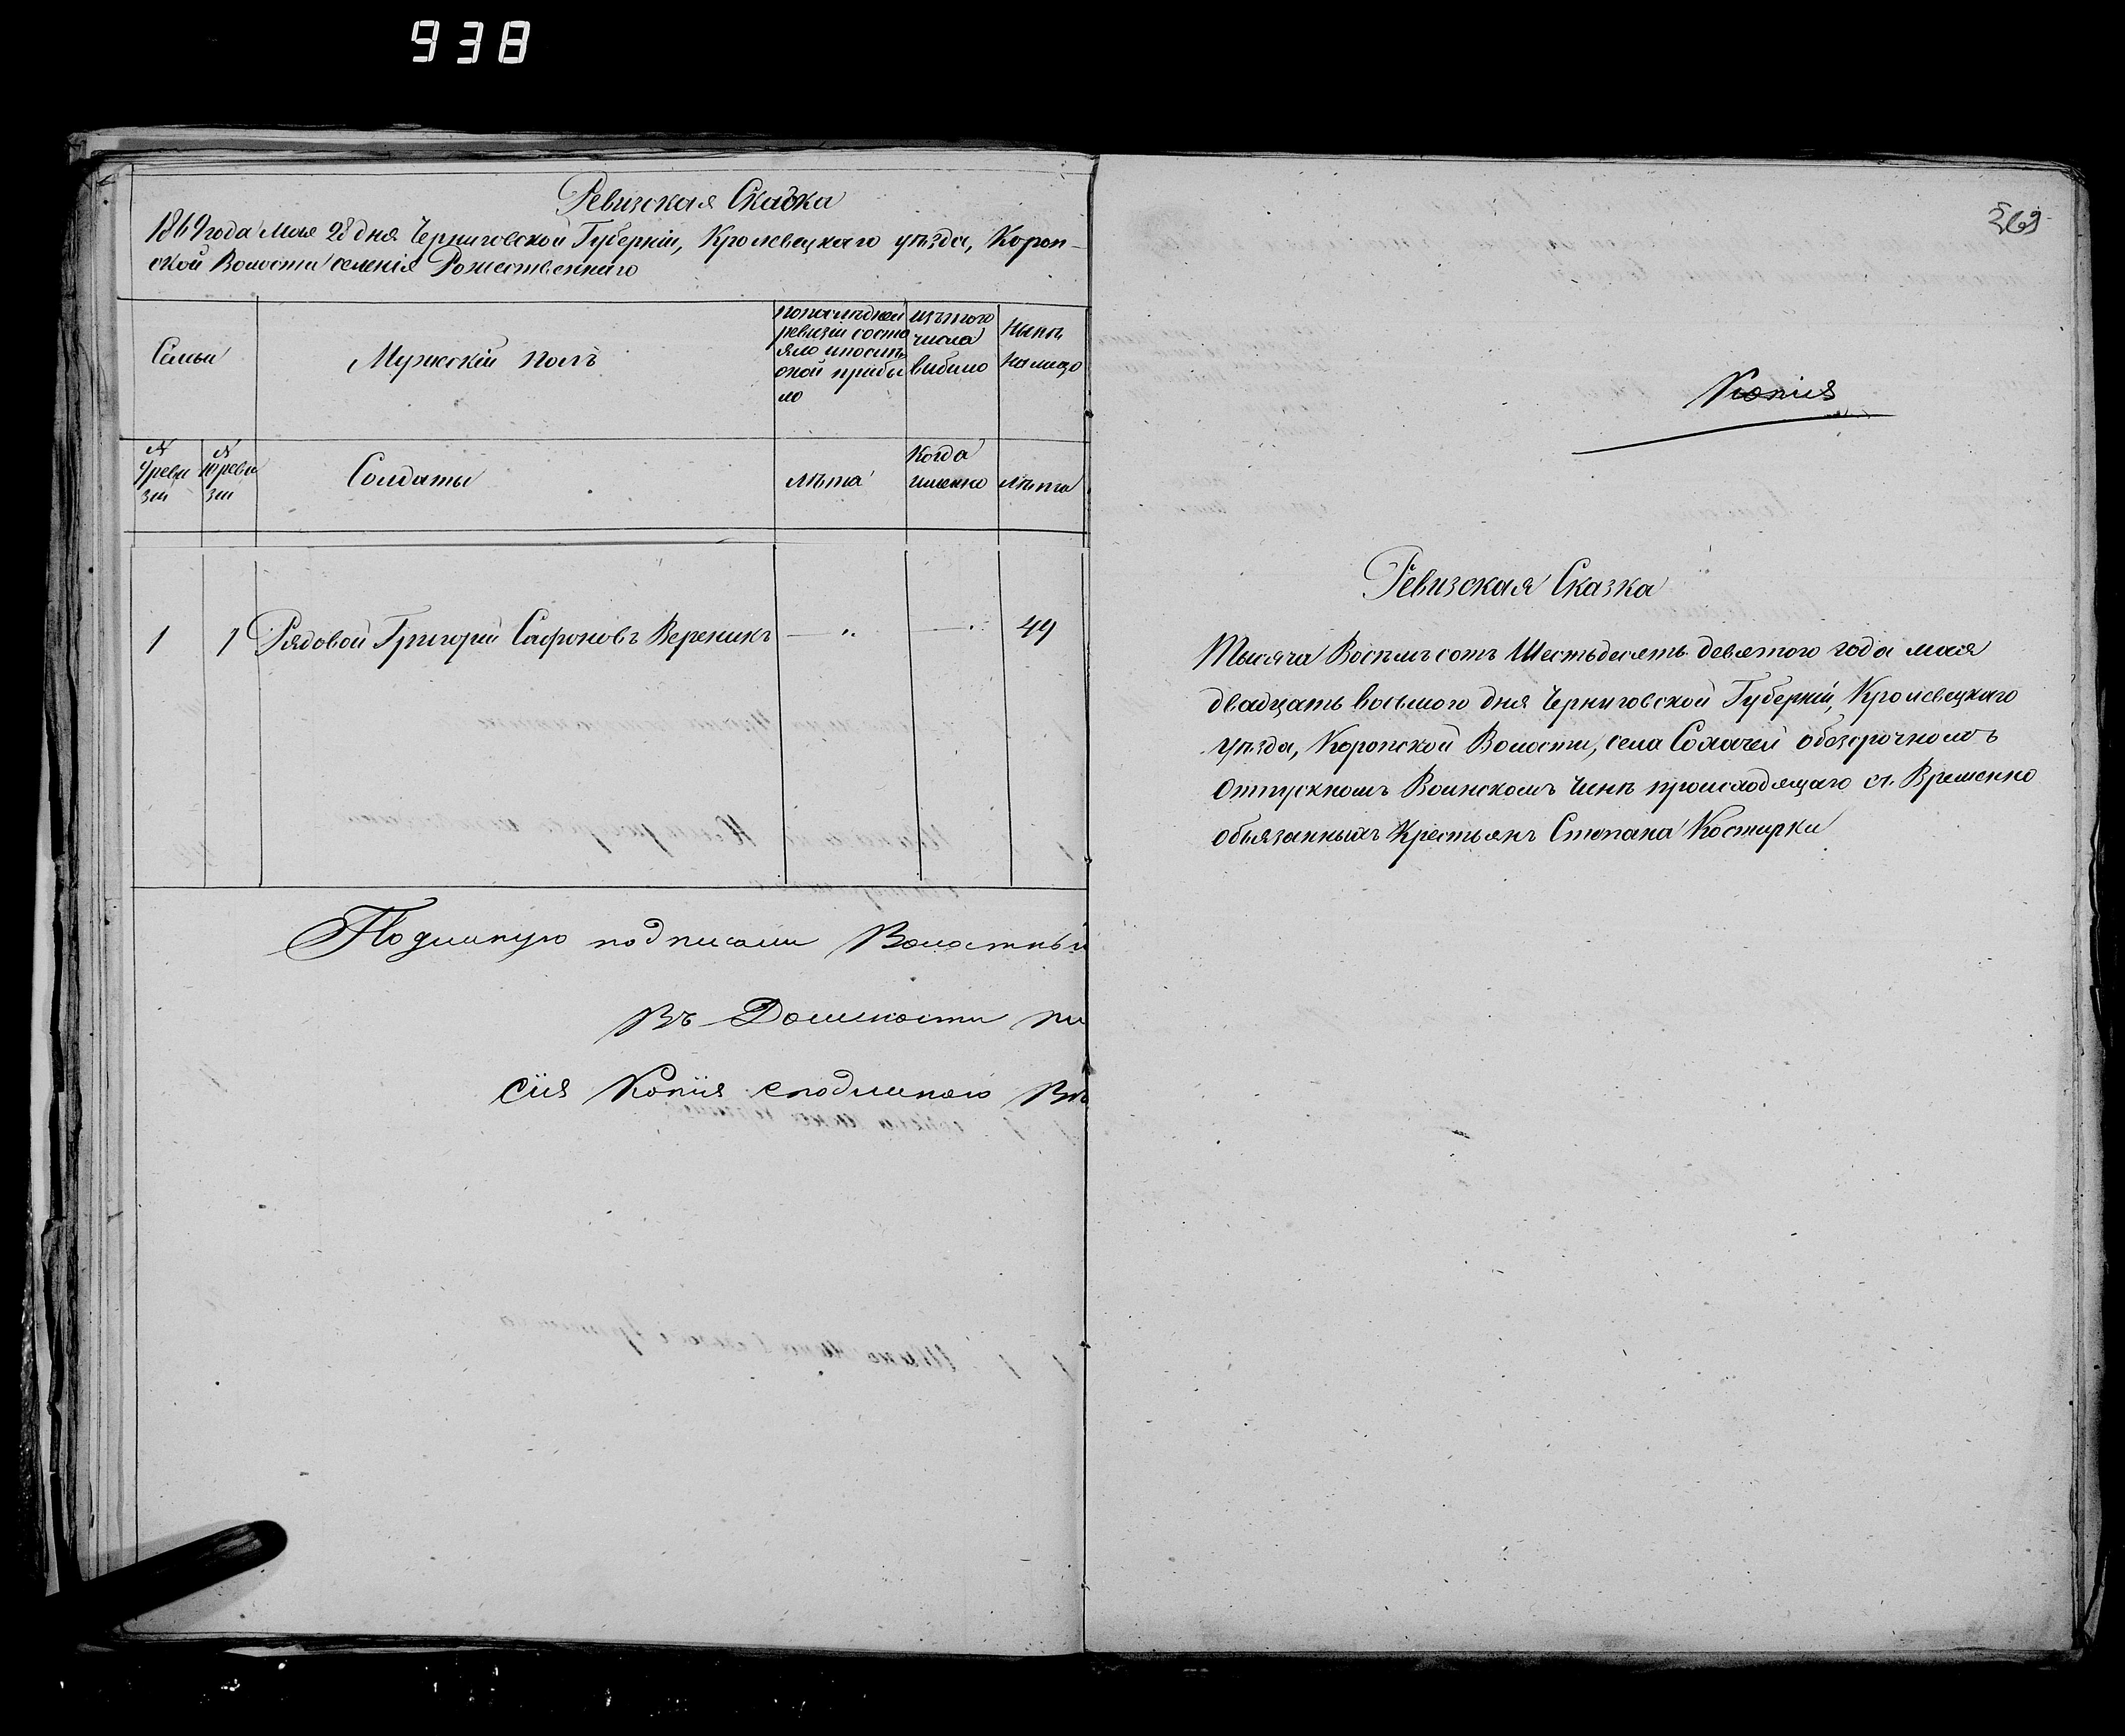 938
Ревизская Сказка
1869 года мая 28 дня Черниговской Губерніи, Кролевецкаго уѣзда, Короп-
ской Волости селенія Рожественнаго
Семьи
Мужескій полъ
попослѣдней
ревизіи состо
яло ипослѣ
оной прибы
ло
изътого
числа
выбыло
Нынѣ
налицо
№
9 реви
зіи
№
10 реви
зіи
Солдаты
лѣта
Когда
именно
лѣта
1 1 Рядовой Григорій Сафроновъ Вереникъ — „ — 49
Подлинную подписали Волостный
Въ Должности пи
Сія Копія сподлинною Вѣ
369
Копія
Ревизская Сказка
Тысяча Восемьсотъ Шестьдесятъ девятого года мая
двадцать восьмого дня Черниговской Губерніи, Кролевецкаго
уѣзда, Коропской Волости, села Сохачей обезсрочномъ
Отпускномъ Воинскомъ Чинѣ происходящаго съ Временно
обьязанныхъ Крестьянъ Степана Костырки